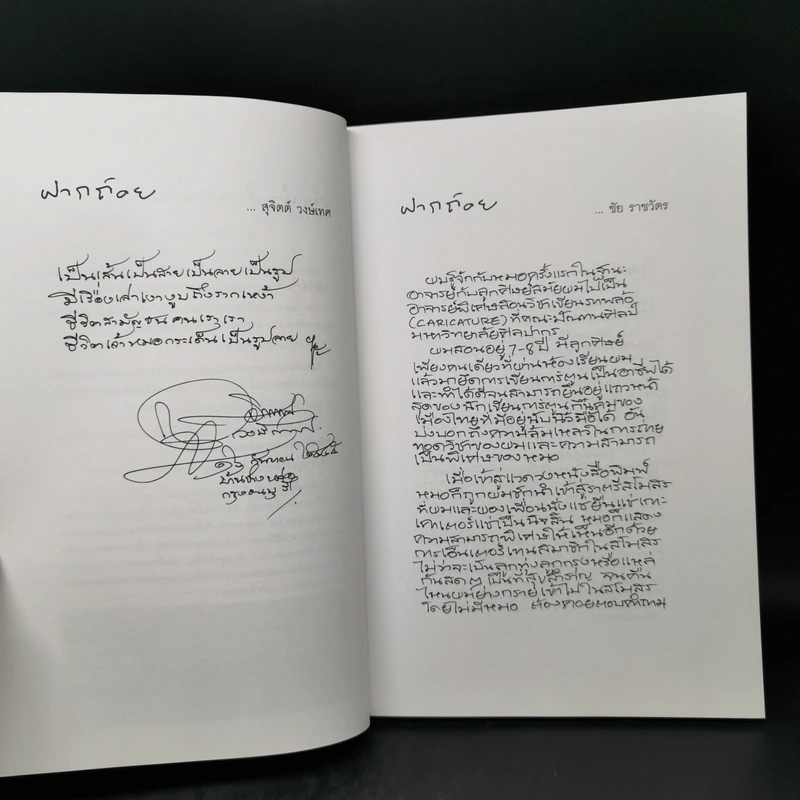 ฝากถ้อย
... สุจิตต์ วงษ์เทศ
เป็นเส้นเป็นสายเป็นลายเป็นรูป
มีเรื่องเล่าเงางูบถึงรากเหง้า
ชีวิตสามัญชนคนเราเรา
ชีวิตเจ้าหมอกระเด็นเป็นรูปลาย
๑๖ กันยายน ๒๕๔๕
ฝากถ้อย
... ชัย ราชวัตร
ผมรู้จักกับหมอครั้งแรกในฐานะ
อาจารย์กับลูกศิษย์สมัยผมไปเป็น
อาจารย์พิเศษสอนวิชาเขียนภาพล้อ
(CARICATURE) ที่คณะมัณฑนศิลป์
มหาวิทยาลัยศิลปากร
ผมสอนอยู่ 7-8 ปี มีลูกศิษย์
เพียงคนเดียวที่ผ่านห้องเรียนผม
แล้วมายึดการเขียนการ์ตูนเป็นอาชีพได้
และทำได้ดีจนสามารถยืนอยู่แถวหน้า
สุดของนักเขียนการ์ตูนกึ๋นคมของ
เมืองไทยที่มีอยู่นับนิ้วมือได้ อัน
บ่งบอกถึงความล้มเหลวในการถ่าย
ทอดวิชาของผมและความสามารถ
เป็นพิเศษของหมอ
เมื่อเข้าสู่แวดวงหนังสือพิมพ์
หมอก็ถูกผมชักนำเข้าสู่ราตรีสโมสร
ที่ผมและผองเพื่อนนั่งแช่ยืนแช่เกาะ
เคาเตอร์แช่เป็นนิจสิน หมอก็แสดง
ความสามารถพิเศษให้เห็นอีกด้วย
การเอ็นเตอร์เทนสมาชิกในสโมสร
ไม่ว่าจะเป็นลูกทุ่งลูกกรุงหรือแหล่
กันสดๆ เป็นที่สุขสำราญ จนคืน
ไหนผมย่างกรายเข้าไปในสโมสร
โดยไม่มีหมอ ต้องคอยตอบคำถาม